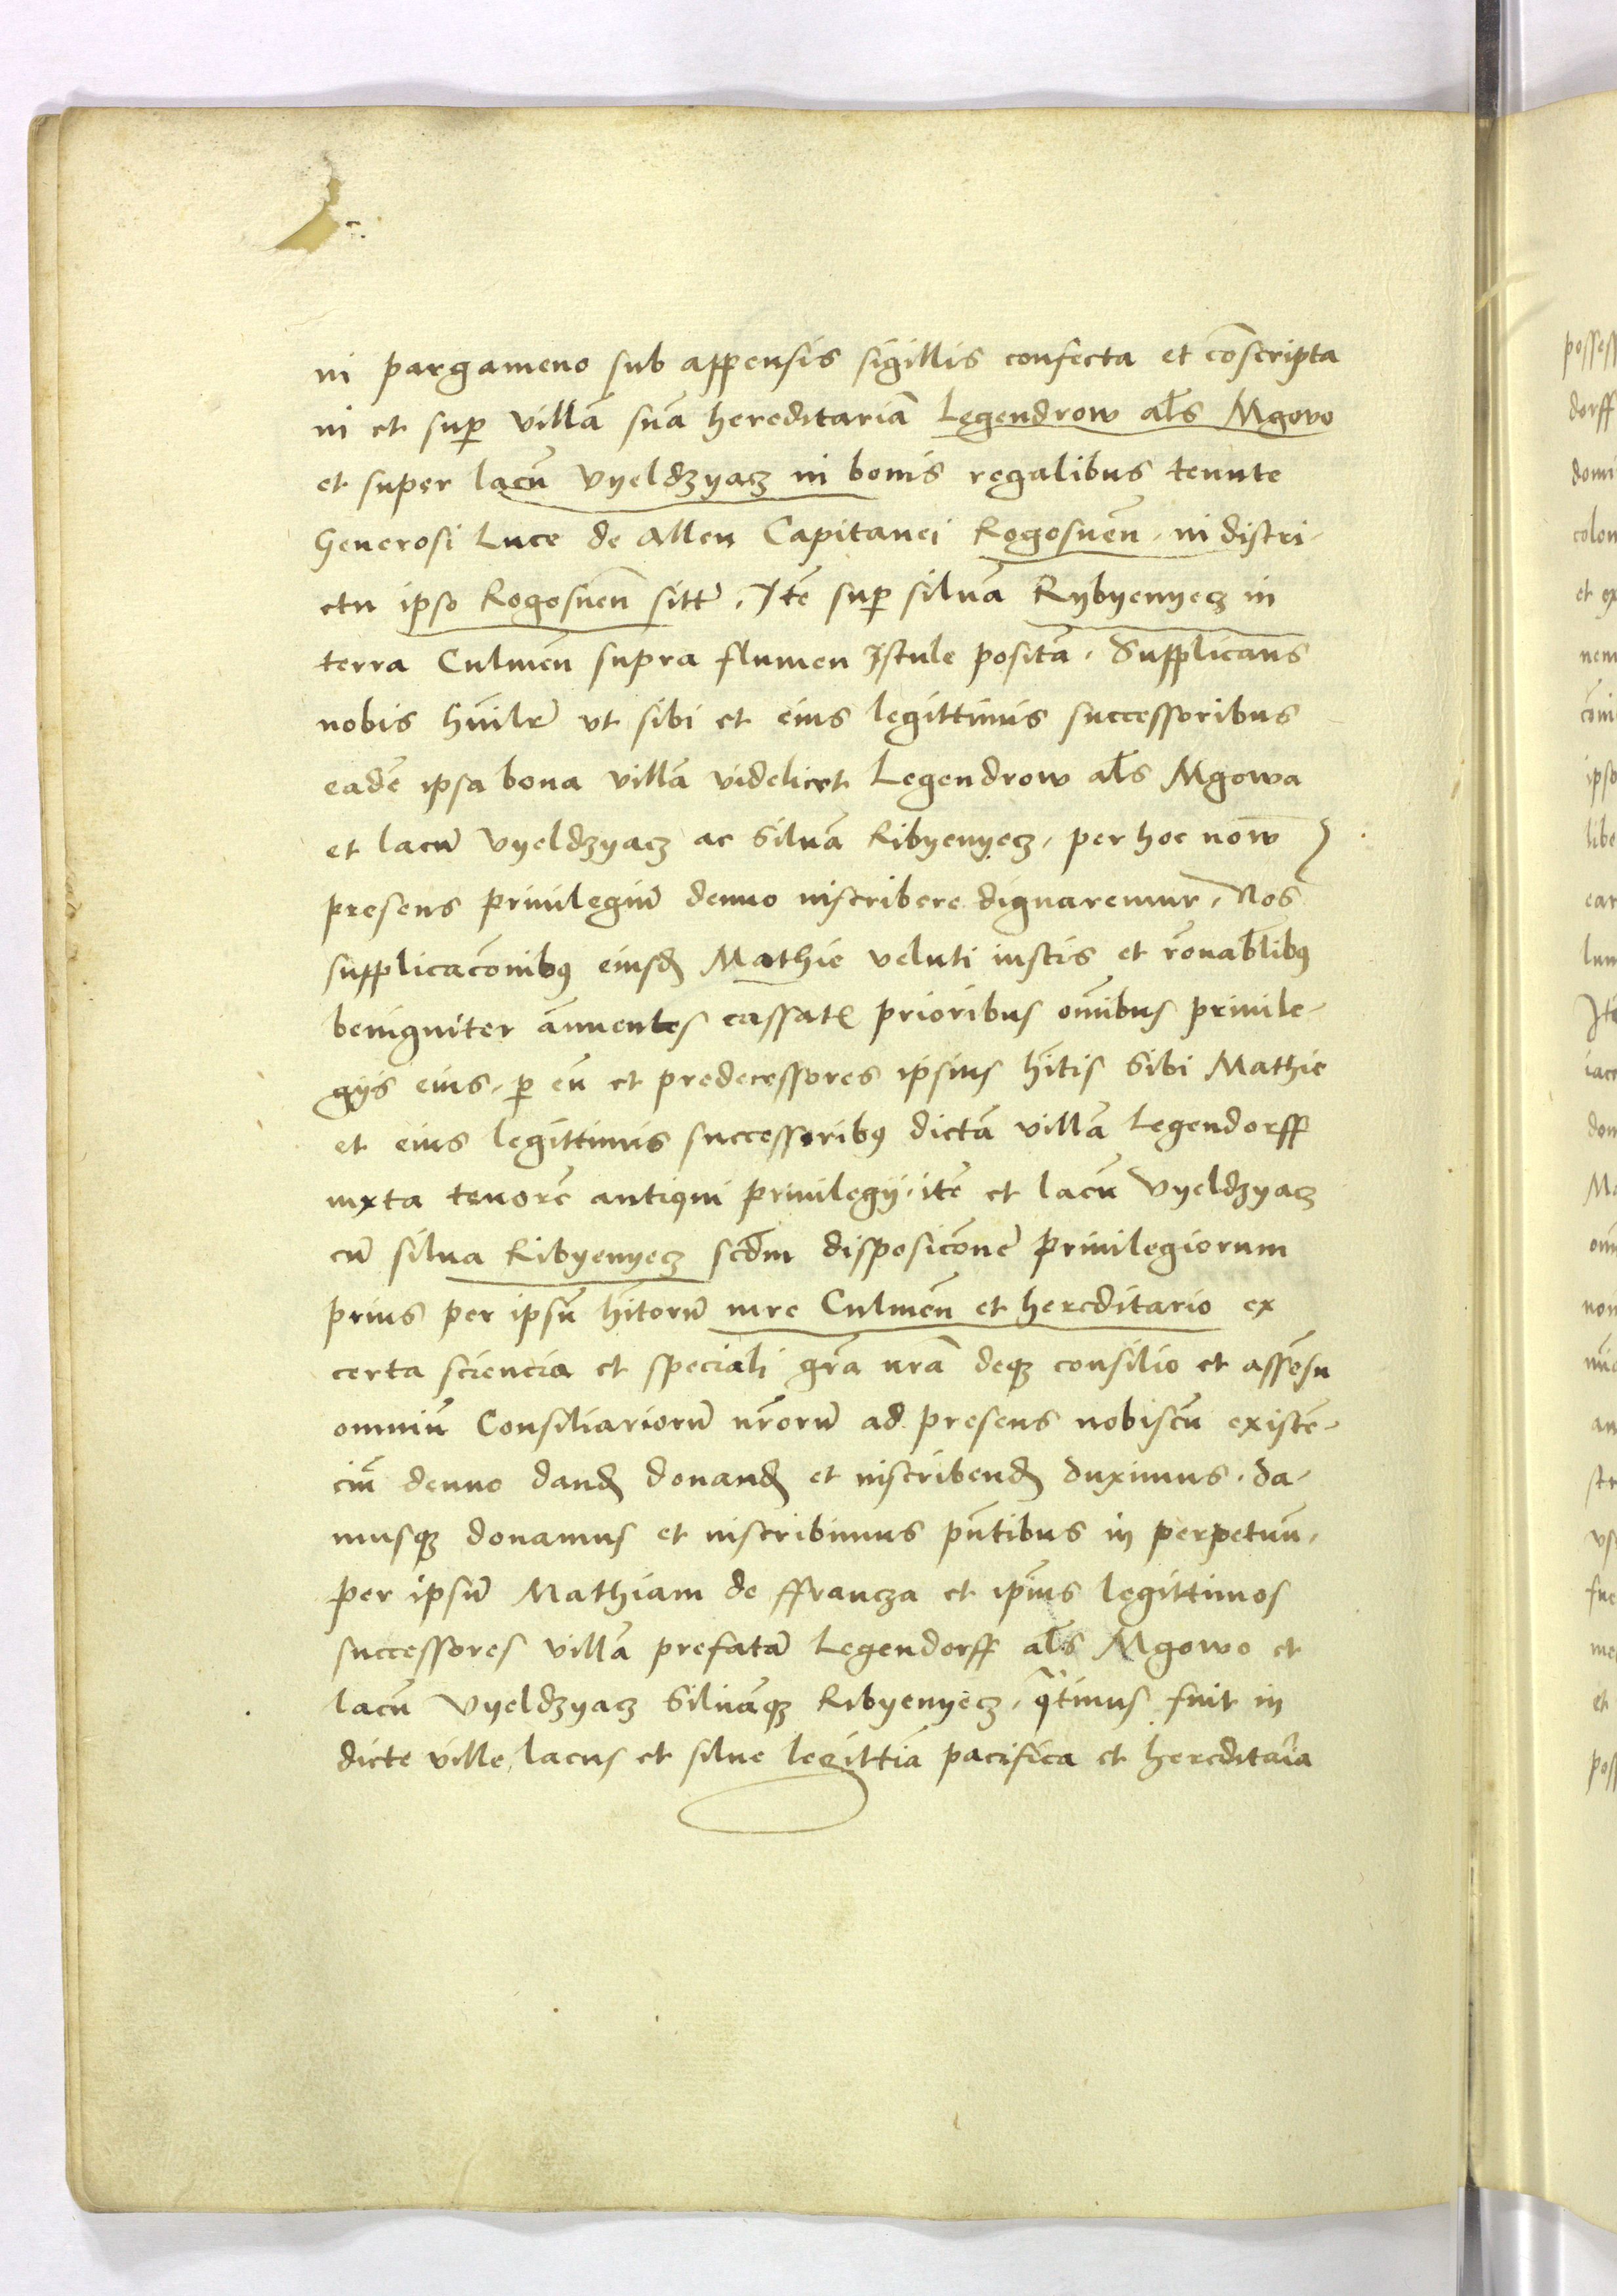 in pargameno sub appensis sigillis confecta et cōscripta
in et sup villā suā hereditariā Legendrow al̄s Mgovo
et super lacū Vyeldzyacz in bonis regalibus tenute
Generosi Luce de Allen Capitanei Rogosneñ. in distri-
ctu ipso Rogosneñ sitū. Itē sup siluā Rybyenyecz in
terra Culmeñ supra flumen Istule positā. Supplicans
nobis hūilr̄ vt sibi et eius legittimis successoribus
eadē ipsa bona villā videlicet Legendrow al̄s Mgowa
et lacū Vyeldzyacz ac Siluā Ribyenyecz, per hoc now̄
presens priuilegiū denuo inscribere dignaremur, Nos
supplicacōnibꝰ eiusđ Mathie veluti iustis et rōnabl̄ibꝰ
benigniter ānuentes cassatꝭ prioribus om̄ibus priuile-
gijs eius, p eū et predecessores ipsius hītis Sibi Mathie
et eius legittimis successoribꝰ dictā villā Legendorff
iuxta tenorē antiqui priuilegij. itē et lacū Vyeldzyacz
cū silua Ribyenyecz scdm̄ disposicōnē priuilegiorum
prius per ipsū hītorū iure Culmeñ et hereditario ex
certa sciencia et speciali gr̄a nr̄a deqꝫ consilio et assēsu
omniū Consiliariorū nr̄orū ad presens nobiscū existē-
ciū denuo danđ donanđ et inscribenđ duximus. da-
musqꝫ donamus et inscribimus pn̄tibus in perpetuū,
per ipsū Mathiam de ffrancza et ip̄ius legittimos
successores villā prefatā Legendorff al̄s Mgowo et
lacū Vyeldzyacz Siluāqꝫ Ribyenyecz, qͣtinus fuit in
dicte ville, lacus et silue legittīa pacifica et hereditār̄ia